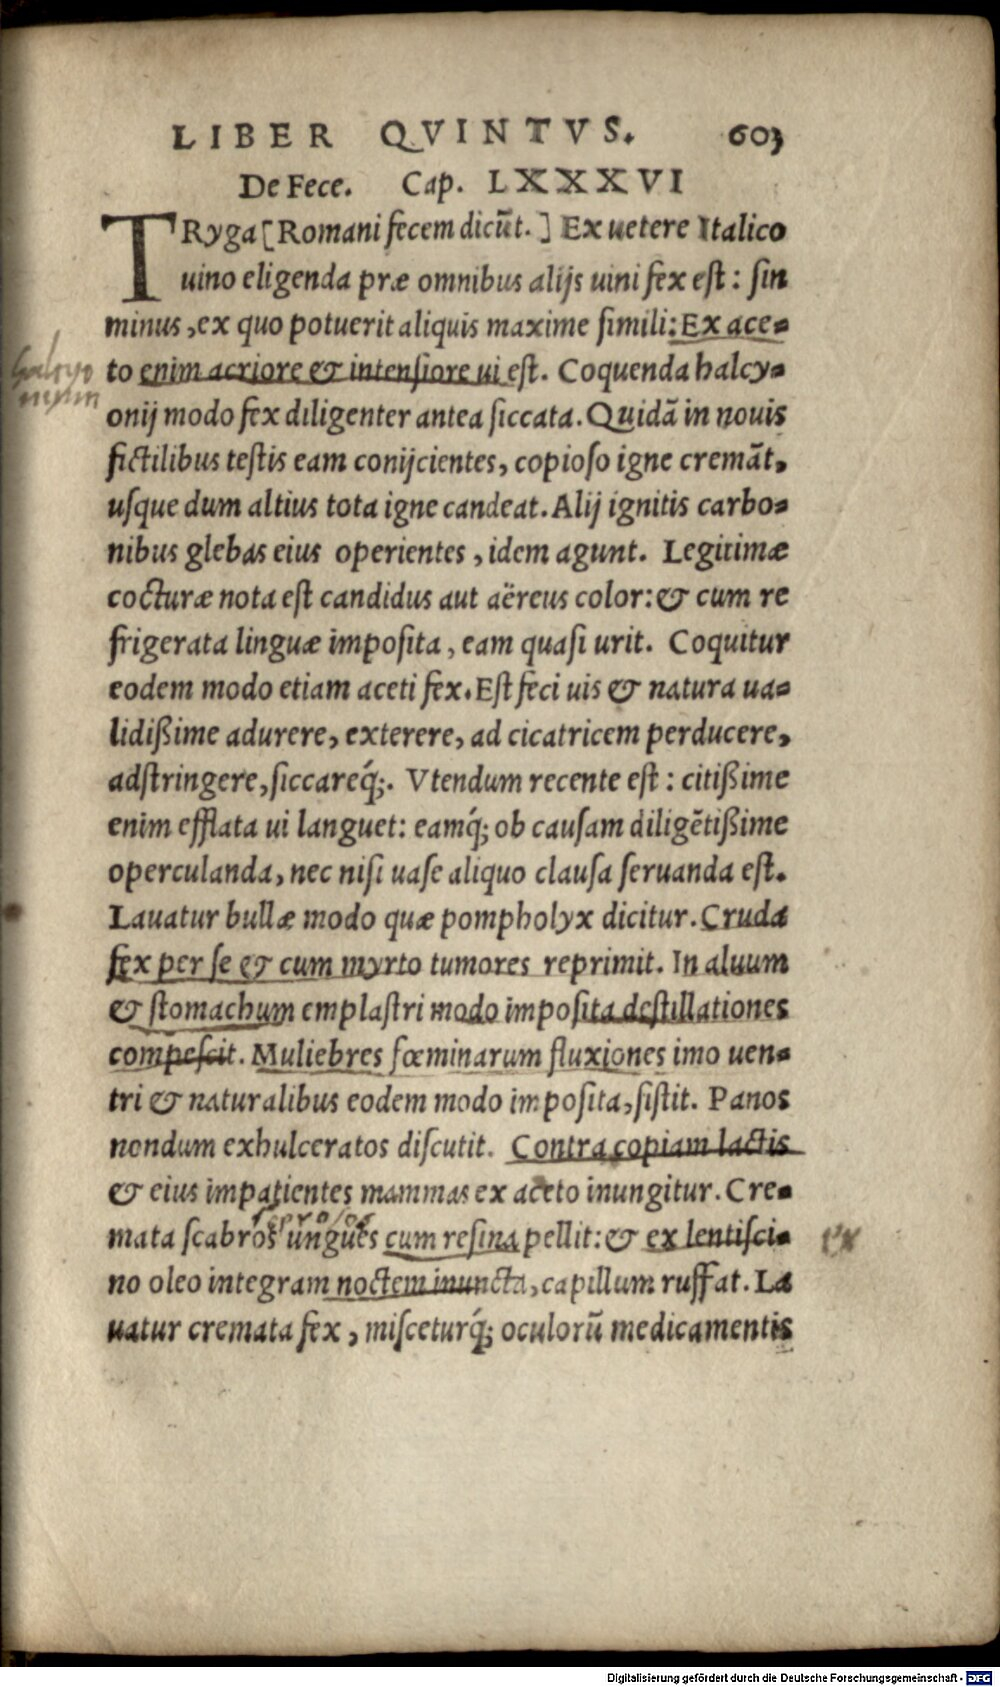 LIBER QVINTVS. 603
De Fece. Cap. LXXXVI
TRyga [Romani fecem dicūt.] Ex uetere Italico
uino eligenda præ omnibus alijs uini fex est: sin
minus, ex quo potuerit aliquis maxime simili: Ex ace-
to enim acriore & intensiore ui est. Coquenda halcy-
onij modo fex diligenter antea siccata. Quidā in nouis
fictilibus testis eam conijcientes, copioso igne cremāt,
usque dum altius tota igne candeat. Alij ignitis carbo-
nibus glebas eius operientes, idem agunt. Legitimæ
cocturæ nota est candidus aut aëreus color: & cum re
frigerata linguæ imposita, eam quasi urit. Coquitur
eodem modo etiam aceti fex. Est feci uis & natura ua-
lidißime adurere, exterere, ad cicatricem perducere,
adstringere, siccareq́;. Vtendum recente est: citißime
enim efflata ui languet: eamq́; ob causam diligētißime
operculanda, nec nisi uase aliquo clausa seruanda est.
Lauatur bullæ modo quæ pompholyx dicitur. Cruda
fex per se & cum myrto tumores reprimit. In aluum
& stomachum emplastri modo imposita destillationes
compescit. Muliebres fœminarum fluxiones imo uen-
tri & naturalibus eodem modo imposita, sistit. Panos
nondum exhulceratos discutit. Contra copiam lactis
& eius impatientes mammas ex aceto inungitur. Cre-
mata scabros ungues cum resina pellit: & ex lentisci-
no oleo integram noctem inuncta, capillum ruffat. La
uatur cremata fex, misceturq́; oculorū medicamentis
halcyo
nium
leprosos
ex
Digitalisierung gefördert durch die Deutsche Forschungsgemeinschaft - DFG